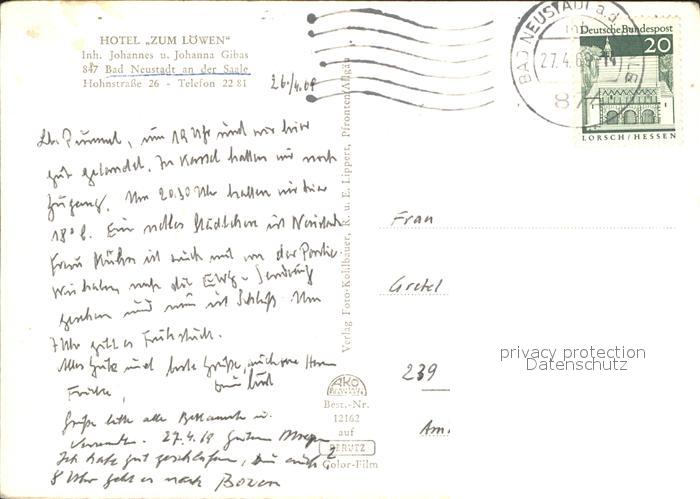 HOTEL „ZUM LÖWEN"
Inh. Johannes u. Johanna Gibas
847 Bad Neustadt an der Saale
Hohnstraße 26 - Telefon 22 81
26./4.69
BAD NEUSTADT a.d.
27.4.69-14
Deutsche Bundespost
20
LORSCH/HESSEN
um 19 Uhr sind wir hier
gut gelandet. In Kassel hatten wir noch
Zugang. Um 20.30 Uhr hatten wir hier
18° C. Ein nettes Städtchen ist Neustadt
Frau ist auch mit von der Partie.
Wir haben noch die Sendung
gesehen und nun ist Schluß. Um
7 Uhr gibt es Frühstück.
Alles Gute und herzl. Grüße, auch von Herrn
Fricke,
Grüße bitte alle Bekannte u.
Verwandte. 27.4.69 Guten Morgen
Ich habe gut geschlafen, Du auch?
8 Uhr geht es nach Bozen
Verlag Foto-Kohlbauer, R. u. E. Lippert, Pfronten/Allgäu
Frau
Gretel
239
Am
privacy protection
Datenschutz
AKO
Best.-Nr.
12162
auf
PERUTZ
Color-Film